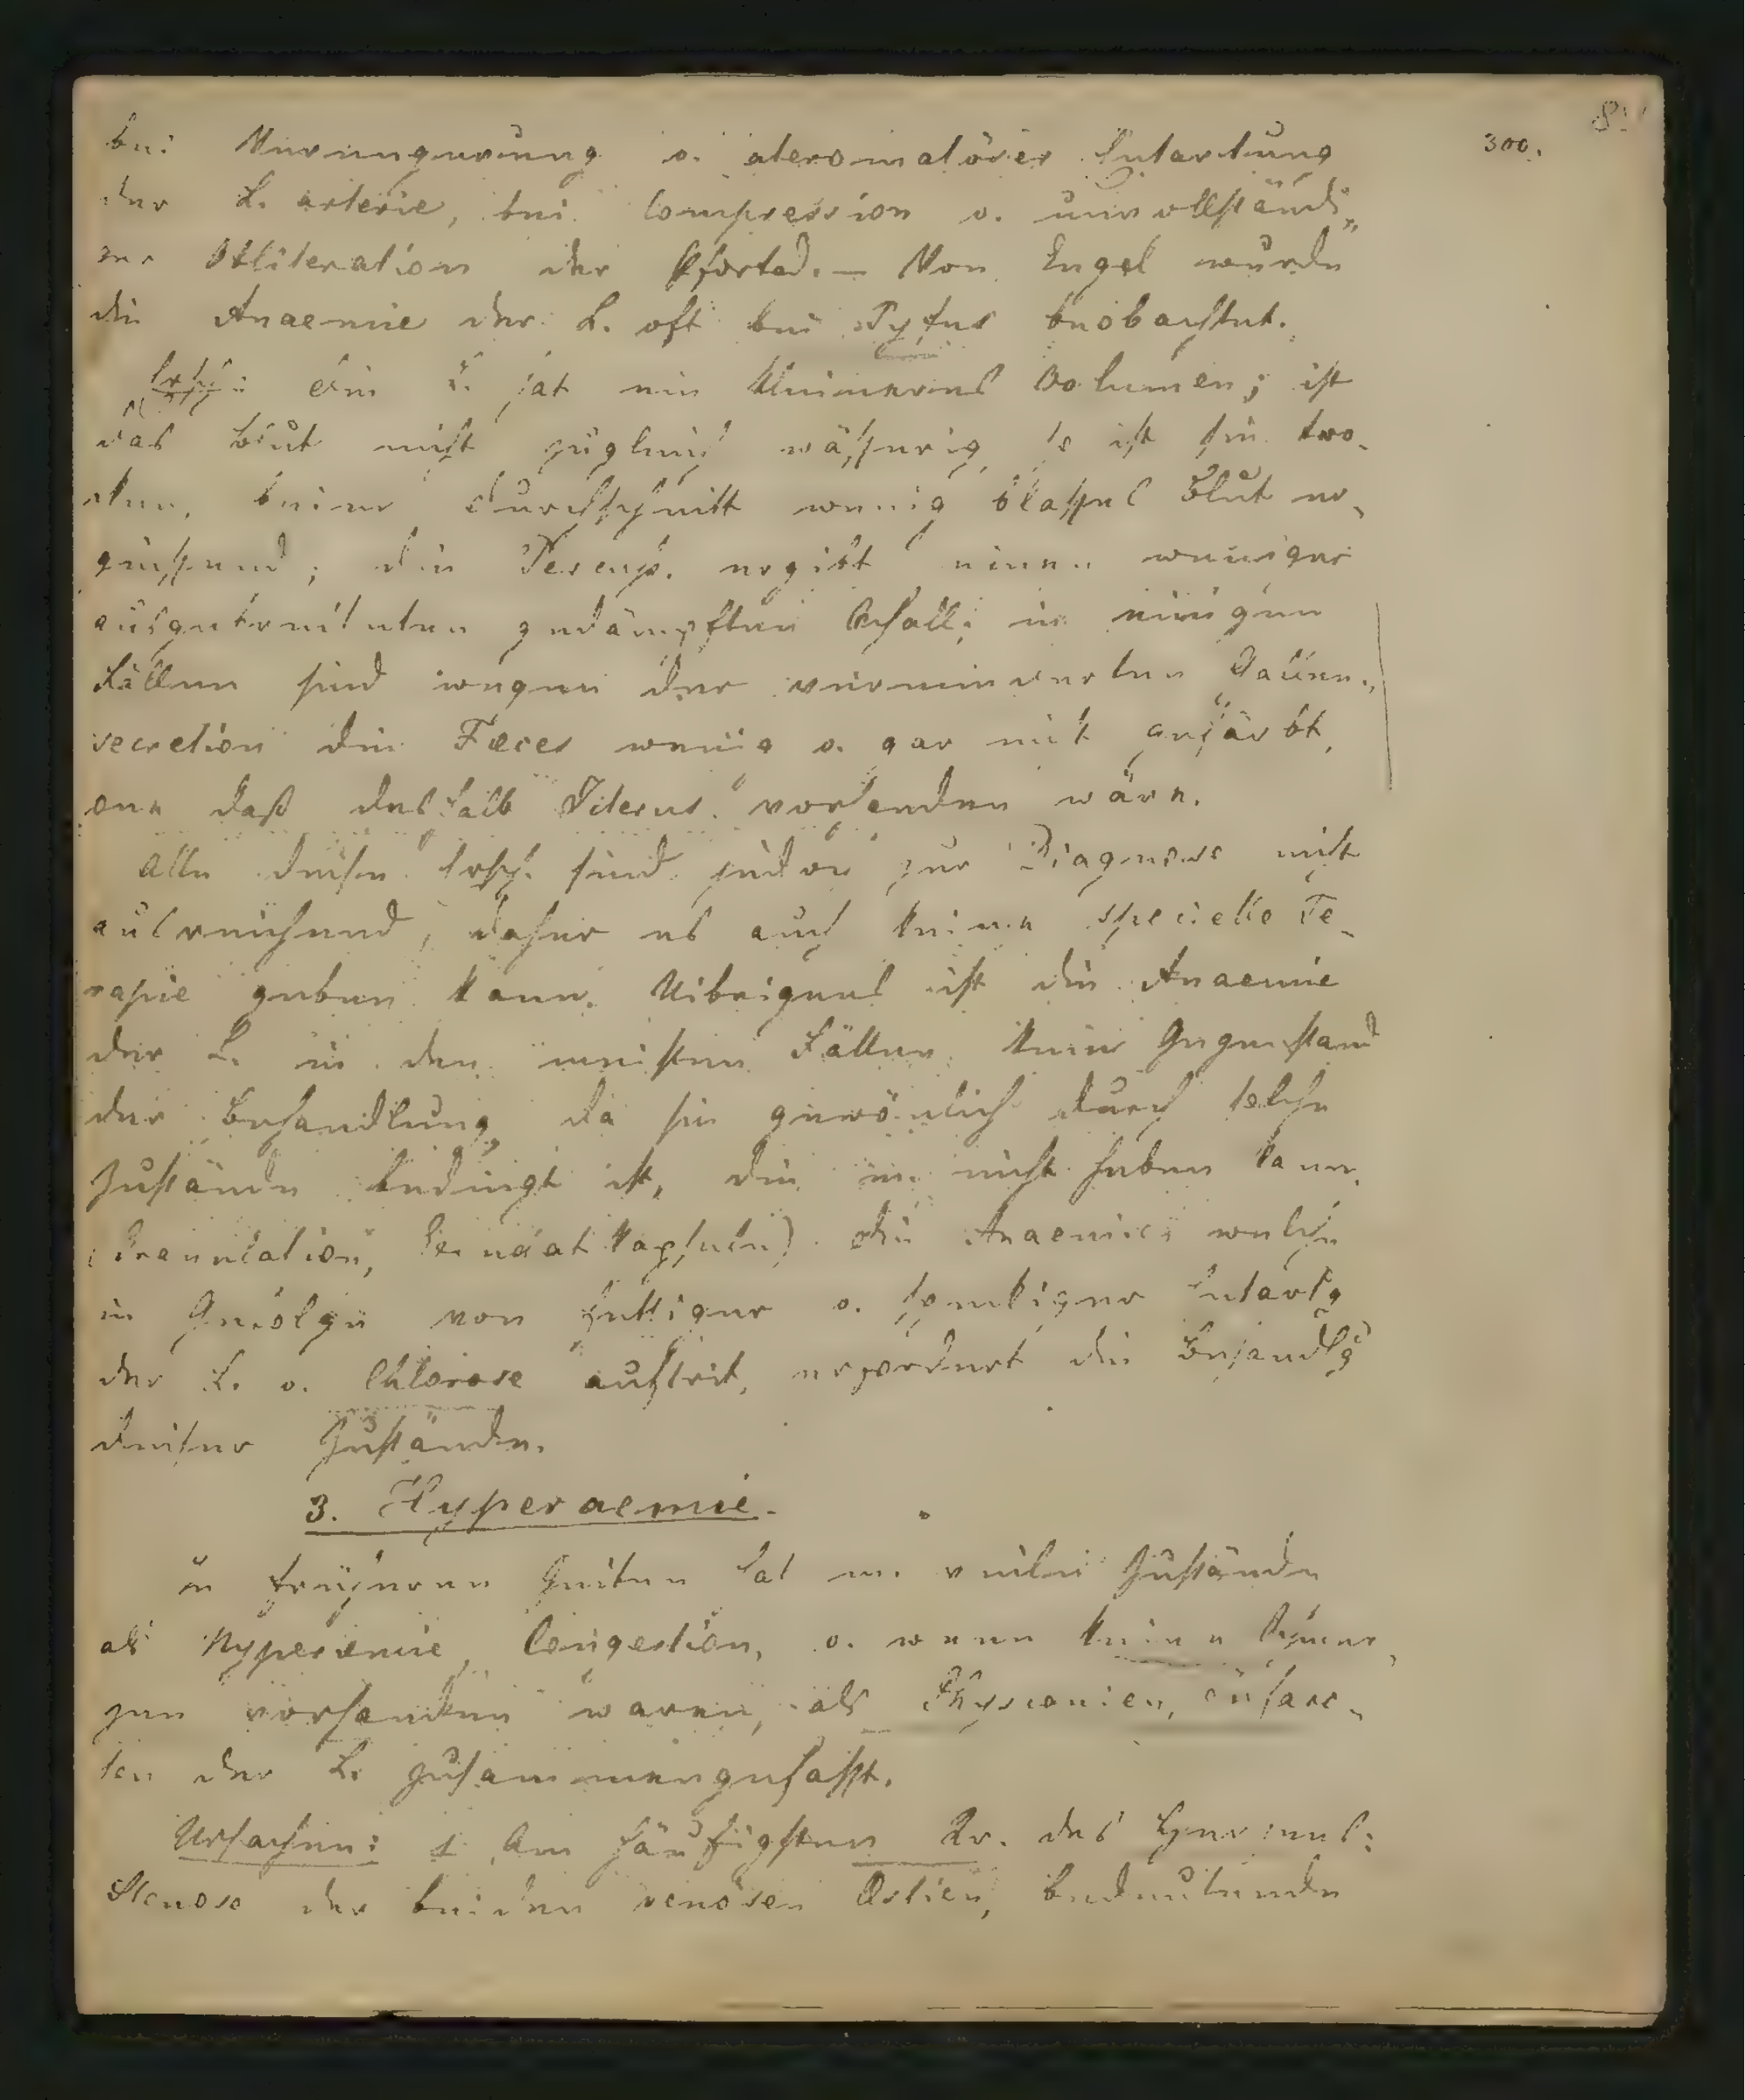 300.
bei Verengerung o. ateromatöser Entartung
der L. arterie, bei Compression o. unvollständi„
ger Obliteration der Pfortad. — Von Engel wurde
die Anaemie der L. oft bei Tyfus beobachtet.
Ersch: die L. hat ein kleineres Volumen; ist
das Blut nicht zugleich wäsſerig, so ist sie tro-
cken, beim Durchſchnitt wenig blaſſes Blut er-
gieſſend; die Percuſs. ergibt einen weniger
ausgebreiteten gedämpften Schall; in einigen
Fällen ſind wegen der verminderten Gallen„
secretion die Fæces wenig o. gar nicht gefärbt,
one daß deshalb Icterus vorhanden wäre.
Alle dieſe Ersch. ſind jedoch zur Diagnose nicht
ausreichend, daher es auch keine specielle Te-
rapie geben kann. Uibrigens ist die Anaemie
der L. in den meiſten Fällen kein Gegenſtand
der Behandlung, da ſie gewönlich durch ſolche
Zuſtände bedingt iſt, die m. nicht heben kann.
Die Anaemie, welche
in Gefolge von fettiger o. ſonſtiger Entartg
der L. o. Chlorose auftrit, erfordert die Behandlg
dieſer Zuſtände.
3. Hyperaemie.
In früheren Zeiten hat m. viele Zuſtände
als Hyperämie, Congestion, o. wenn keine Schmer„
zen vorhanden waren, als Physconien, Infarc-
ten der L. zuſammengefaſſt.
Urſachen: 1. Am häufigſten Kr. des Herzens:
Stenose der beiden venösen Ostien, bedeutende